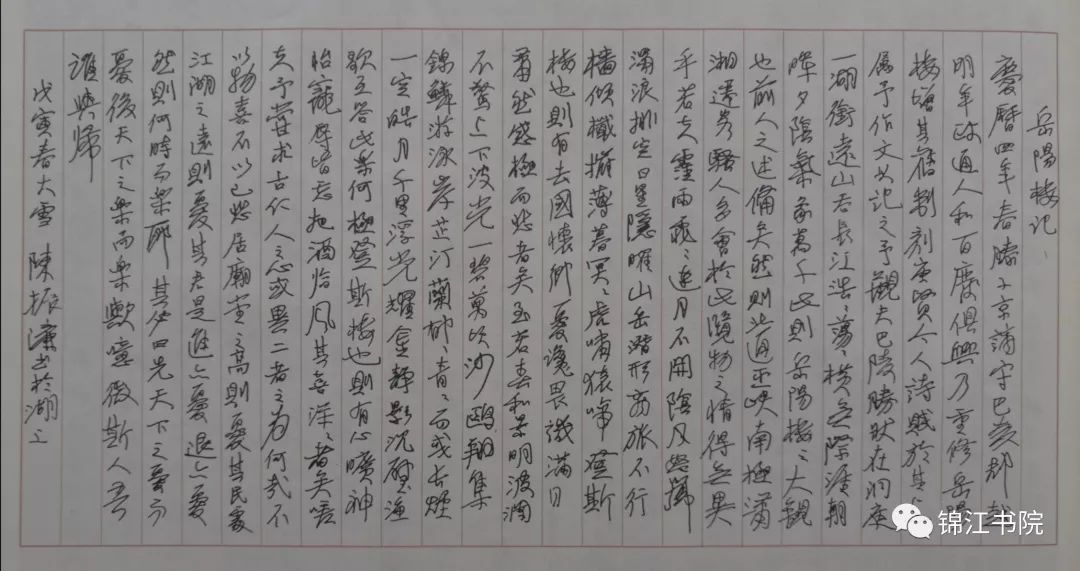 岳陽樓記、
慶曆四年春滕子京謫守巴陵郡越
明年政通人和百廢俱興乃重修岳陽
樓增其舊制刻唐賢今人詩賦於其上
屬予作文以記之予觀夫巴陵勝狀在洞庭
一湖銜遠山吞長江浩、蕩、橫無際涯朝
暉夕陰氣象萬千此則岳陽樓之大觀
也前人之述備矣然則北通巫峽南極瀟
湘遷客騷人多會於此覽物之情得無異
乎若夫霪雨霏、連月不開陰風怒號
濁浪排空日星隱曜山岳潛形商旅不行
檣傾檝摧薄暮冥、虎嘯猿啼登斯
樓也則有去國懷鄉憂讒畏譏滿目
蕭然感極而悲者矣至若春和景明波瀾
不驚上下波光一碧萬頃沙鷗翔集
錦鱗游泳岸芷汀蘭郁、青、而或長煙
一空皓月千里浮光耀金靜影沉璧漁
歌互答此樂何極登斯樓也則有心曠神
怡寵辱皆忘把酒臨風其喜洋、者矣嗟
夫予嘗求古仁人之心或異二者之為何哉不
以物喜不以己悲居廟堂之高則憂其民處
江湖之遠則憂其君是進亦憂退亦憂
然則何時而樂耶其必曰先天下之憂而
憂後天下之樂而樂歟噫微斯人吾
誰與歸
戊寅春大雪 陳振濂書於湖上
锦江书院